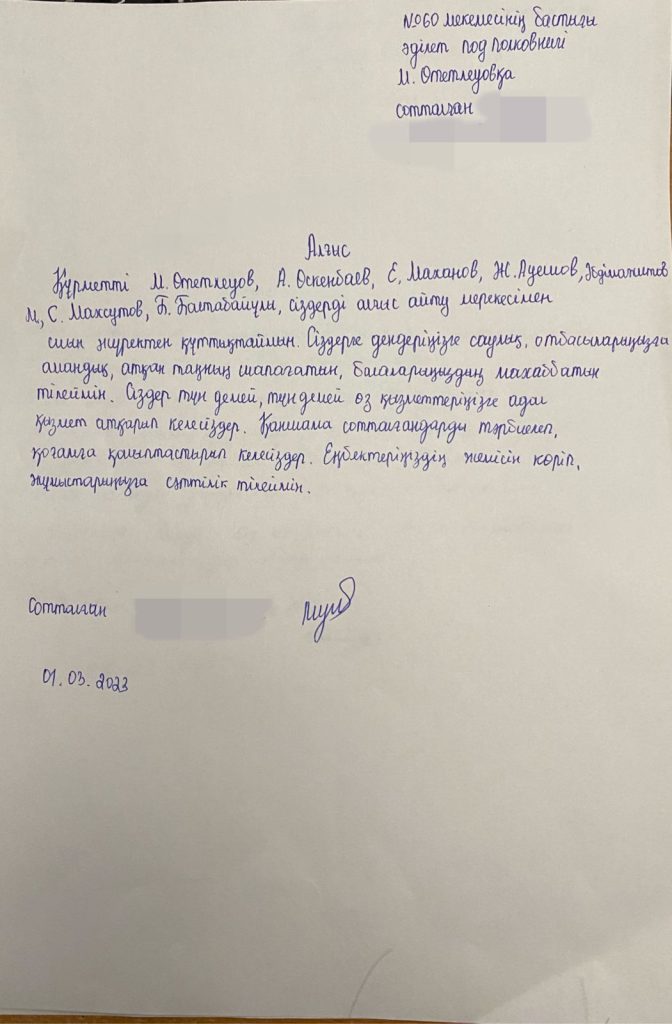 №60 мекемесінің бастығы
әділет под полковнигі
М. Өтетлеуовқа
сотталған
Алғыс
Құрметті М. Өтетлеуов, А. Оскенбаев, Е. Маханов, Ж. Ауешов, Әбдімажитов
М, С. Махсутов, Б. Балтабайұлы, сіздерді алғыс айту мерекесімен
шын жүректен құттықтаймын. Сіздерге дендеріңізге саулық, отбасыларыңызға
амандық, атқан таңның шапағатын, балаларыңыздың махаббатын
тілеймін. Сіздер түн демей, түн демей өз қызметтеріңізге адал
қызмет атқарып келесіздер. Қаншама сотталғандарды тәрбиелеп,
қоғамға қалыптастырып келесіздер. Еңбектеріңіздің жемісін көріп,
жұмыстарыңызға сәттілік тілеймін.
Сотталған
01.03.2023